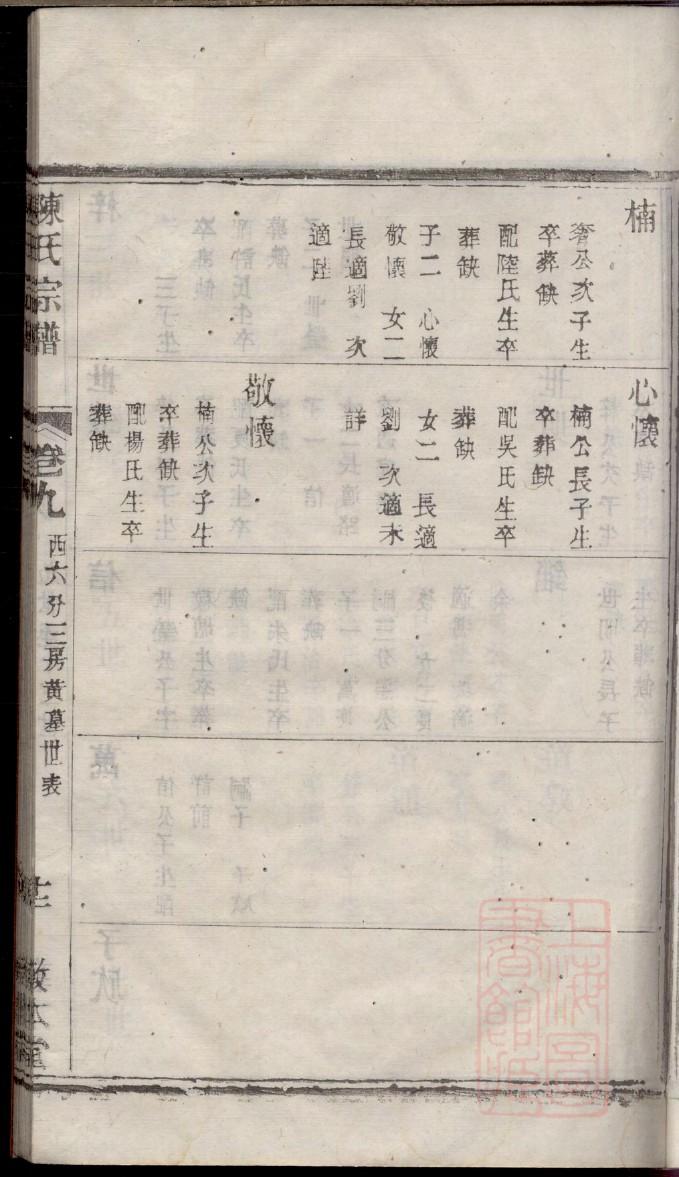 楠
奢公次子生
卒葬缺
配陸氏生卒
葬缺
子二 心懷
敬懷 女二
長適劉 次
適陸
心懷
楠公長子生
卒葬缺
配吳氏生卒
葬缺
女二 長適
劉 次適未
詳
敬懷
楠公次子生
卒葬缺
配楊氏生卒
葬缺
陳氏宗譜
卷九
西六分三房黃墓世表
敬本堂
上海圖書館藏